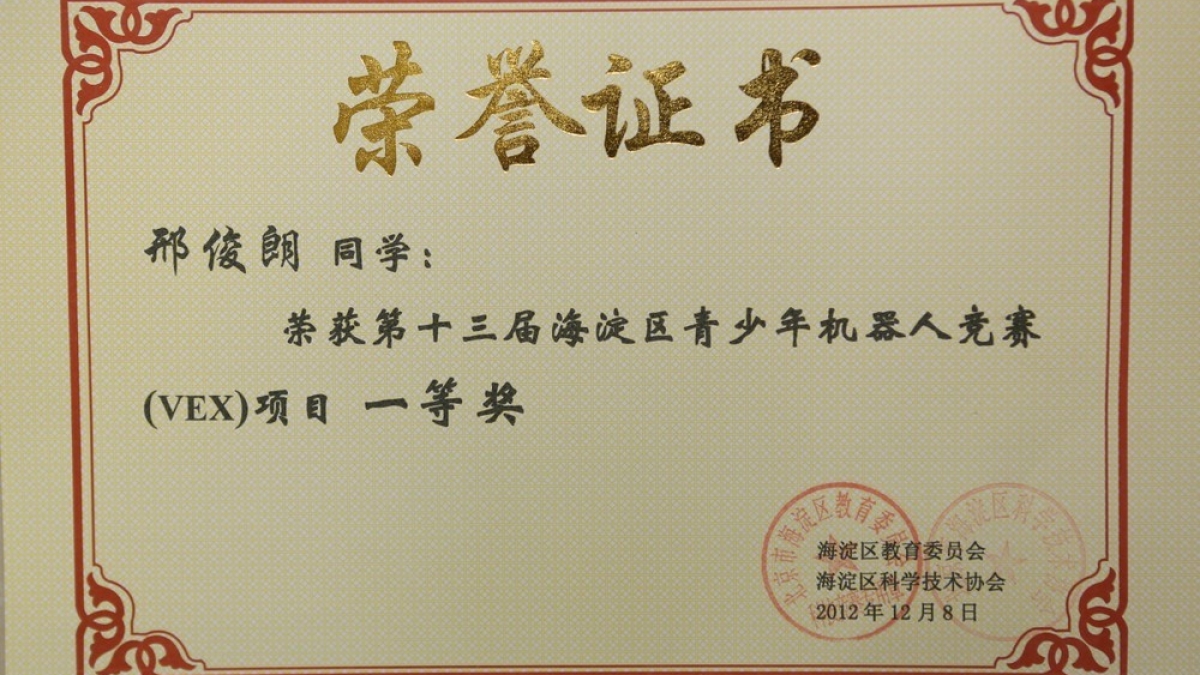 荣誉证书
邢俊朗 同学：
荣获第十三届海淀区青少年机器人竞赛
(VEX)项目 一等奖
北京市海淀区教育委员
海淀区科学技术
海淀区教育委员会
海淀区科学技术协会
2012年12月8日